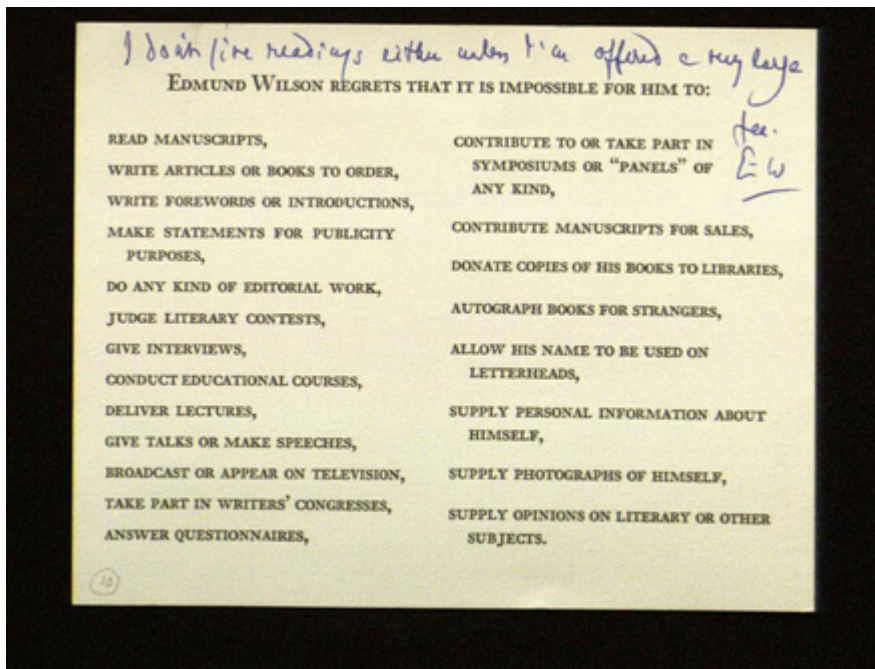 I don't give readings either unless I'm offered a very large
fee.
E W
EDMUND WILSON REGRETS THAT IT IS IMPOSSIBLE FOR HIM TO:
READ MANUSCRIPTS,
WRITE ARTICLES OR BOOKS TO ORDER,
WRITE FOREWORDS OR INTRODUCTIONS,
MAKE STATEMENTS FOR PUBLICITY
PURPOSES,
DO ANY KIND OF EDITORIAL WORK,
JUDGE LITERARY CONTESTS,
GIVE INTERVIEWS,
CONDUCT EDUCATIONAL COURSES,
DELIVER LECTURES,
GIVE TALKS OR MAKE SPEECHES,
BROADCAST OR APPEAR ON TELEVISION,
TAKE PART IN WRITERS' CONGRESSES,
ANSWER QUESTIONNAIRES,
CONTRIBUTE TO OR TAKE PART IN
SYMPOSIUMS OR "PANELS" OF
ANY KIND,
CONTRIBUTE MANUSCRIPTS FOR SALES,
DONATE COPIES OF HIS BOOKS TO LIBRARIES,
AUTOGRAPH BOOKS FOR STRANGERS,
ALLOW HIS NAME TO BE USED ON
LETTERHEADS,
SUPPLY PERSONAL INFORMATION ABOUT
HIMSELF,
SUPPLY PHOTOGRAPHS OF HIMSELF,
SUPPLY OPINIONS ON LITERARY OR OTHER
SUBJECTS.
10